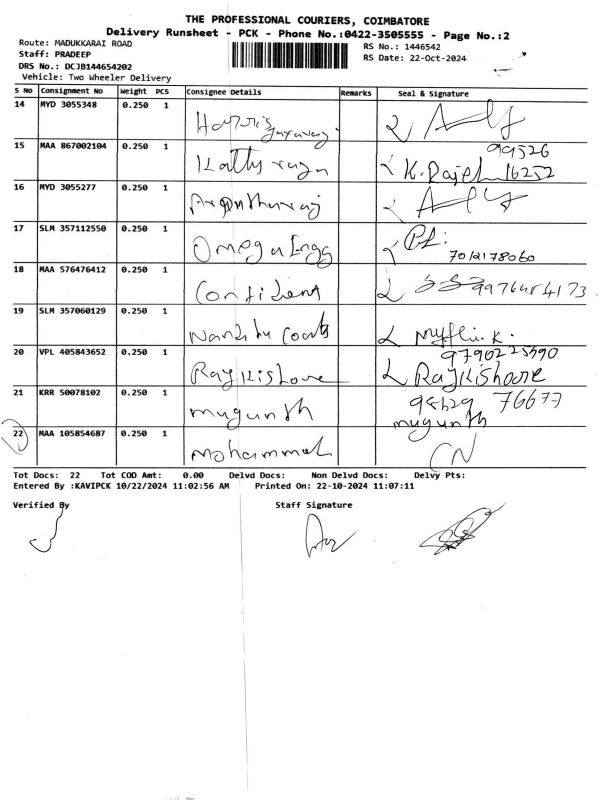 THE PROFESSIONAL COURIERS, COIMBATORE
Delivery Runsheet - PCK - Phone No.:0422-3505555 - Page No.:2
Route: MADUKKARAI ROAD
RS No.: 1446542
Staff: PRADEEP
RS Date: 22-Oct-2024
DRS No.: DCJB144654202
Vehicle: Two Wheeler Delivery
S No Consignment No Weight PCS Consignee Details Remarks Seal & Signature
14 MYD 3055348 0.250 1
15 MAA 867002104 0.250 1 K. Rajesh 99526 16252
16 MYD 3055277 0.250 1
17 SLM 357112550 0.250 1 Omega Engg 7012178060
18 MAA 576476412 0.250 1 Confident
19 SLM 357060129 0.250 1
20 VPL 405843652 0.250 1 Raykishore Raykishoore
21 KRR 50078102 0.250 1 mugunth 76677 mugunth
22 MAA 105854687 0.250 1 Mohammed CN
Tot Docs: 22 Tot COD Amt: 0.00 Delvd Docs: Non Delvd Docs: Delvy Pts:
Entered By :KAVIPCK 10/22/2024 11:02:56 AM Printed On: 22-10-2024 11:07:11
Verified By Staff Signature